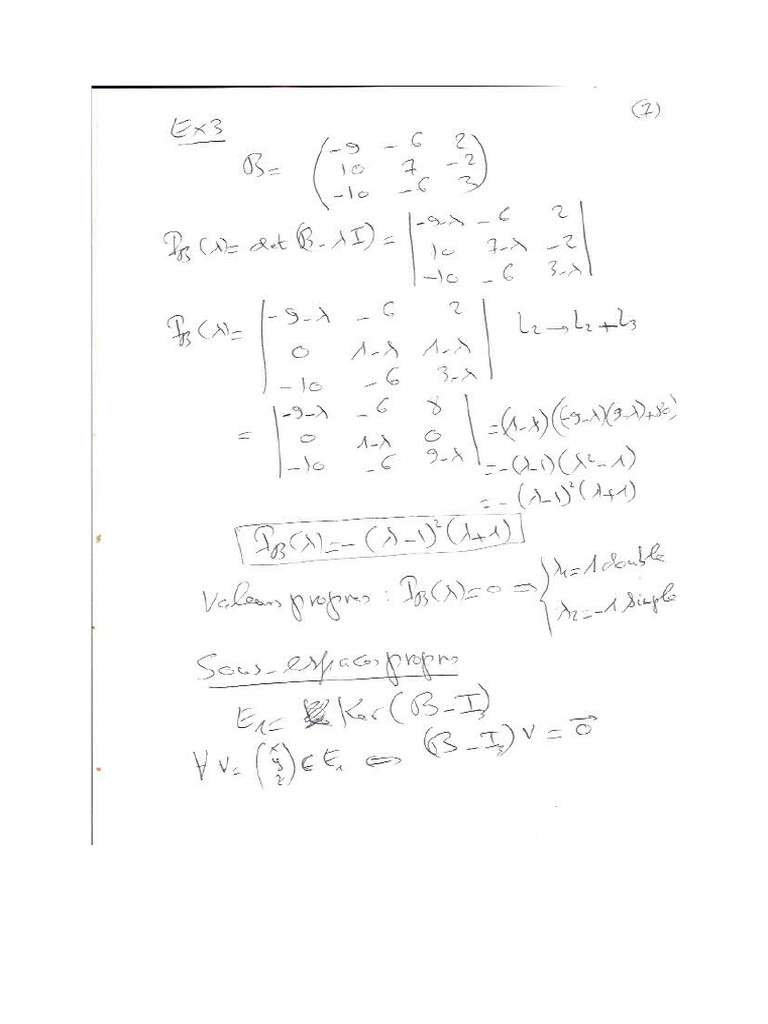 (7)
Ex3
B = ( -9 -6 2
10 7 -2
-10 -6 3 )
P_B(λ) = det(B - λI) = | -9-λ -6 2
10 7-λ -2
-10 -6 3-λ |
P_B(λ) = | -9-λ -6 2
0 1-λ 1-λ
-10 -6 3-λ | L₂ → L₂ + L₃
= | -9-λ -6 8
0 1-λ 0
-10 -6 9-λ | = (1-λ)((-9-λ)(9-λ)+80)
= -(λ-1)(λ²-1)
= -(λ-1)²(λ+1)
P_B(λ) = -(λ-1)²(λ+1)
Valeurs propres : P_B(λ) = 0 ⇒ { λ₁ = 1 double
λ₂ = -1 simple
Sous-espaces propres
E₁ = Ker(B - I₃)
∀ V = (x y z) ∈ E₁ ⇔ (B - I₃) V = 0⃗